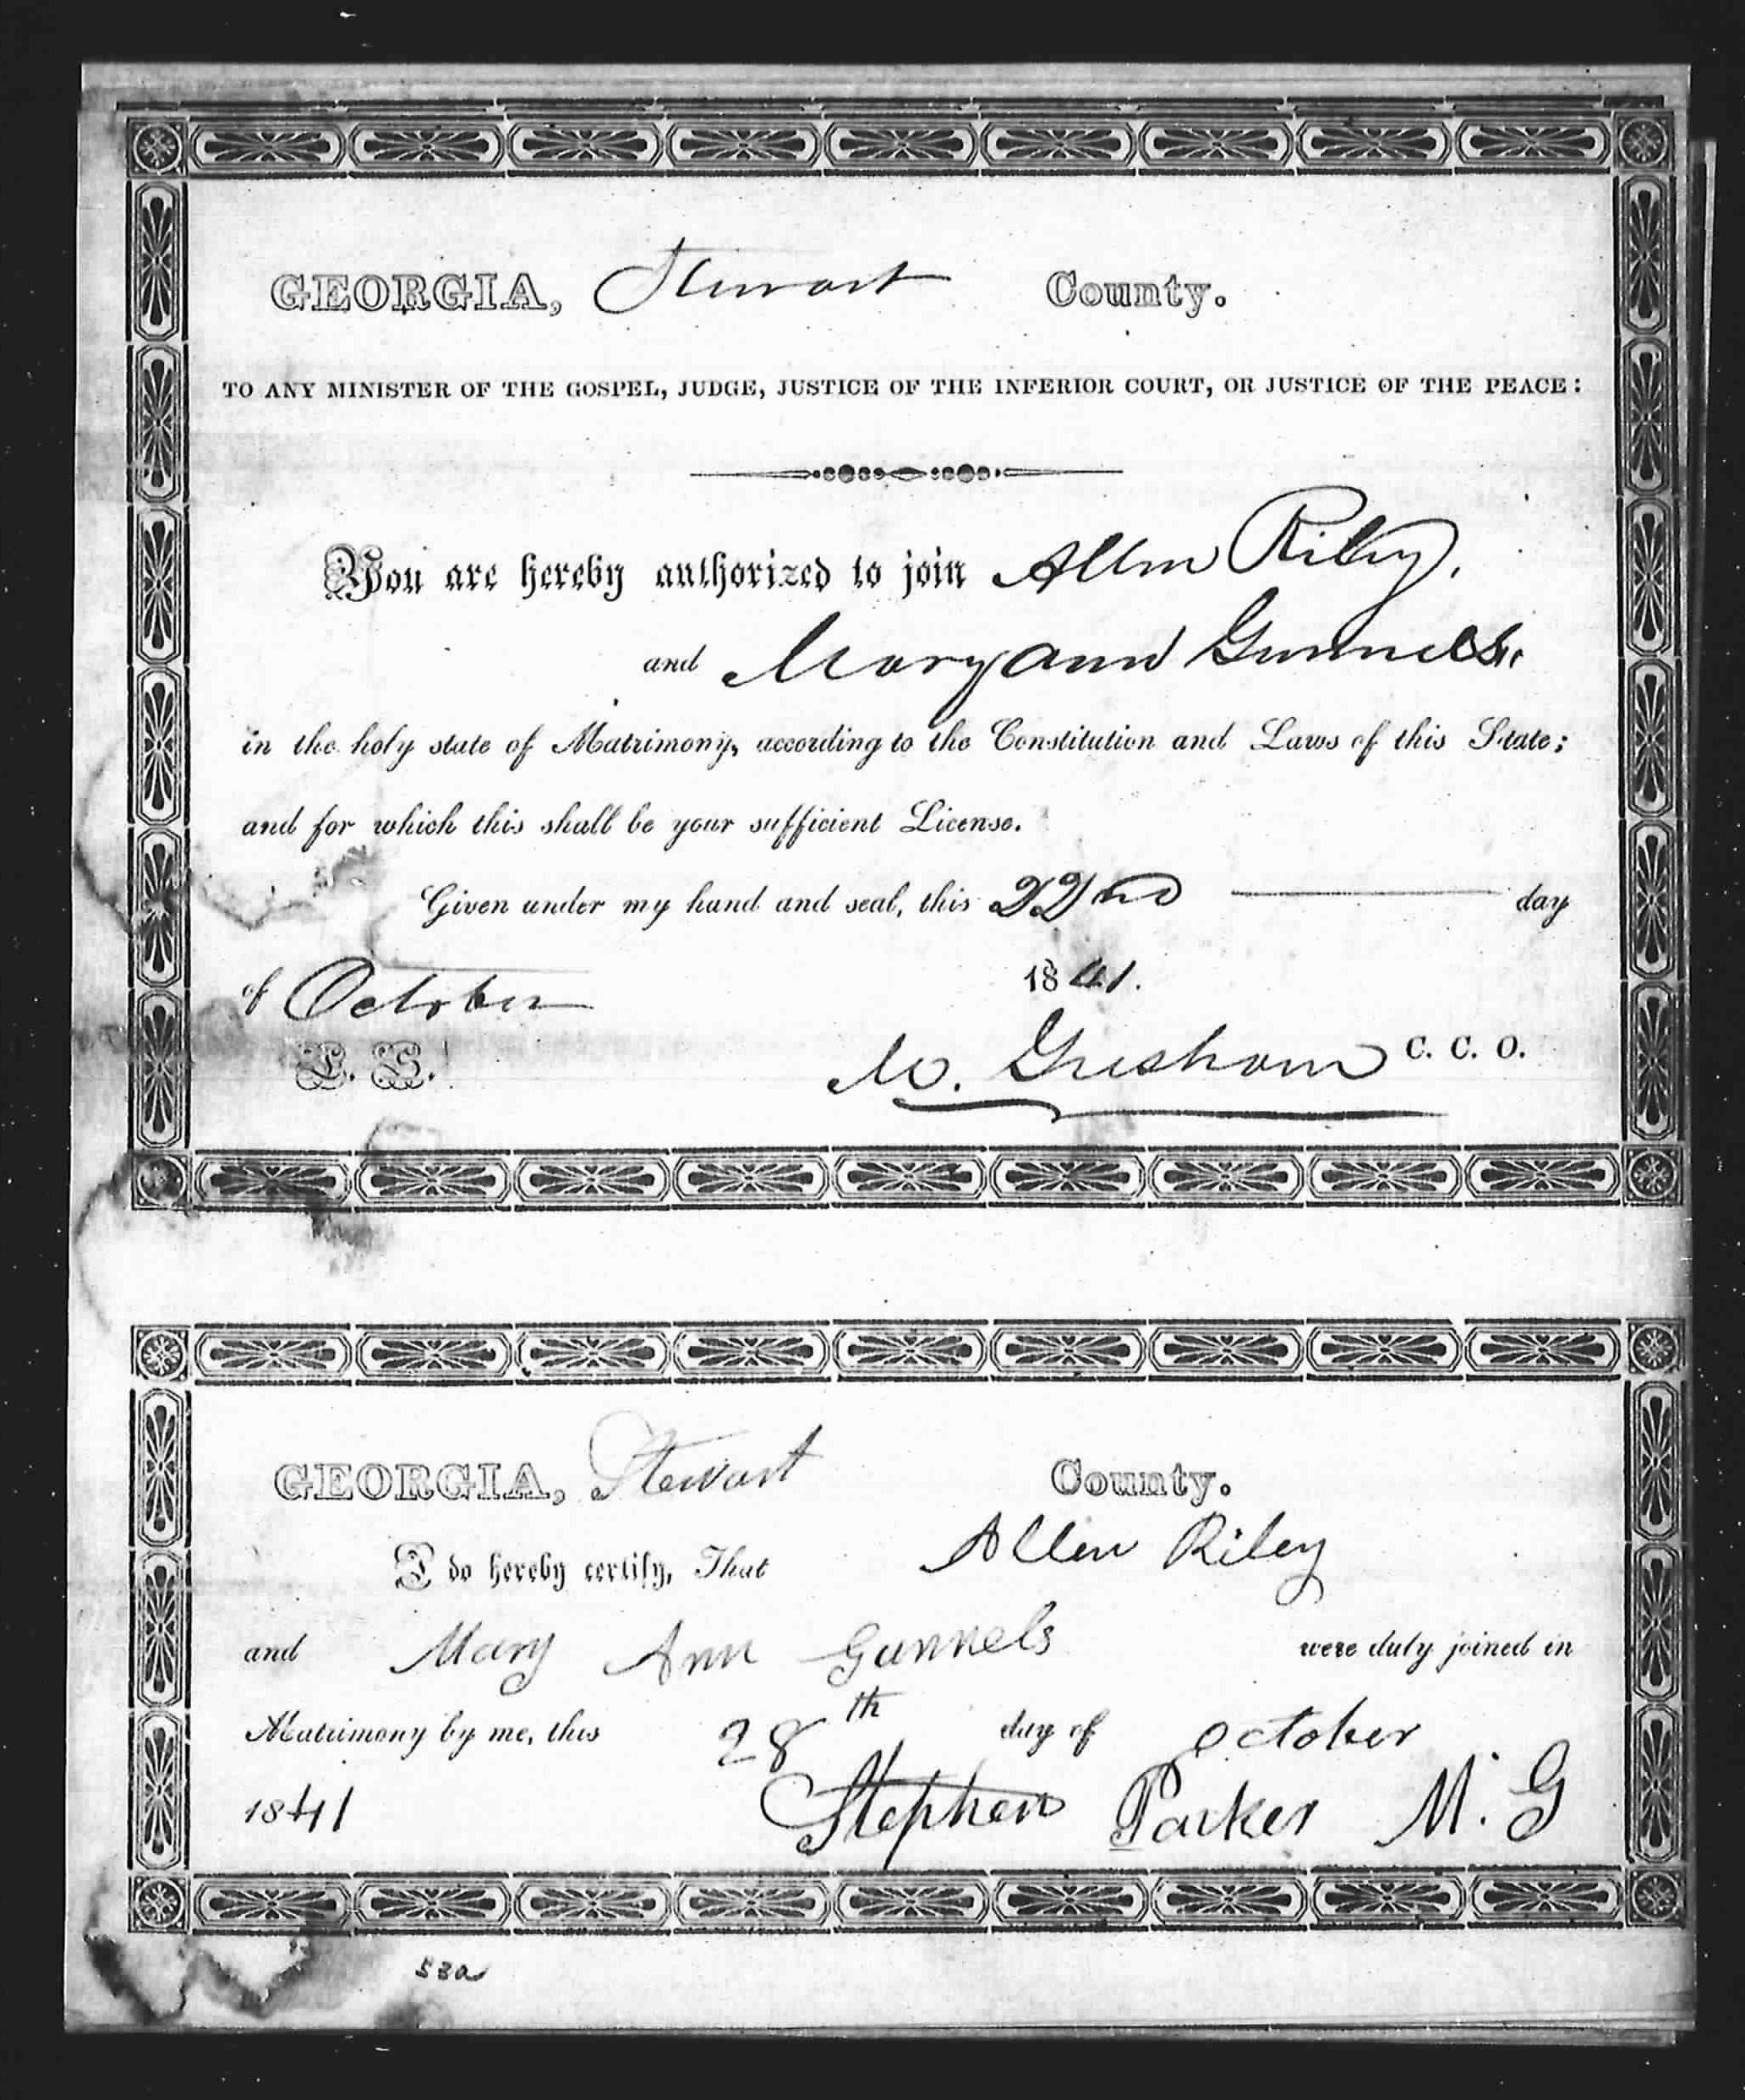 GEORGIA, Stewart County.
TO ANY MINISTER OF THE GOSPEL, JUDGE, JUSTICE OF THE INFERIOR COURT, OR JUSTICE OF THE PEACE:
You are hereby authorized to join Allen Riley,
and Mary ann Gunnels,
in the holy state of Matrimony, according to the Constitution and Laws of this State;
and for which this shall be your sufficient License.
Given under my hand and seal, this 22nd day
of October 1841.
L. S. M. Gresham C. C. O.
GEORGIA, Stewart County.
I do hereby certify, That Allen Riley
and Mary Ann Gunnels were duly joined in
Matrimony by me, this 28th day of October
1841 Stephen Parker M. G
53a